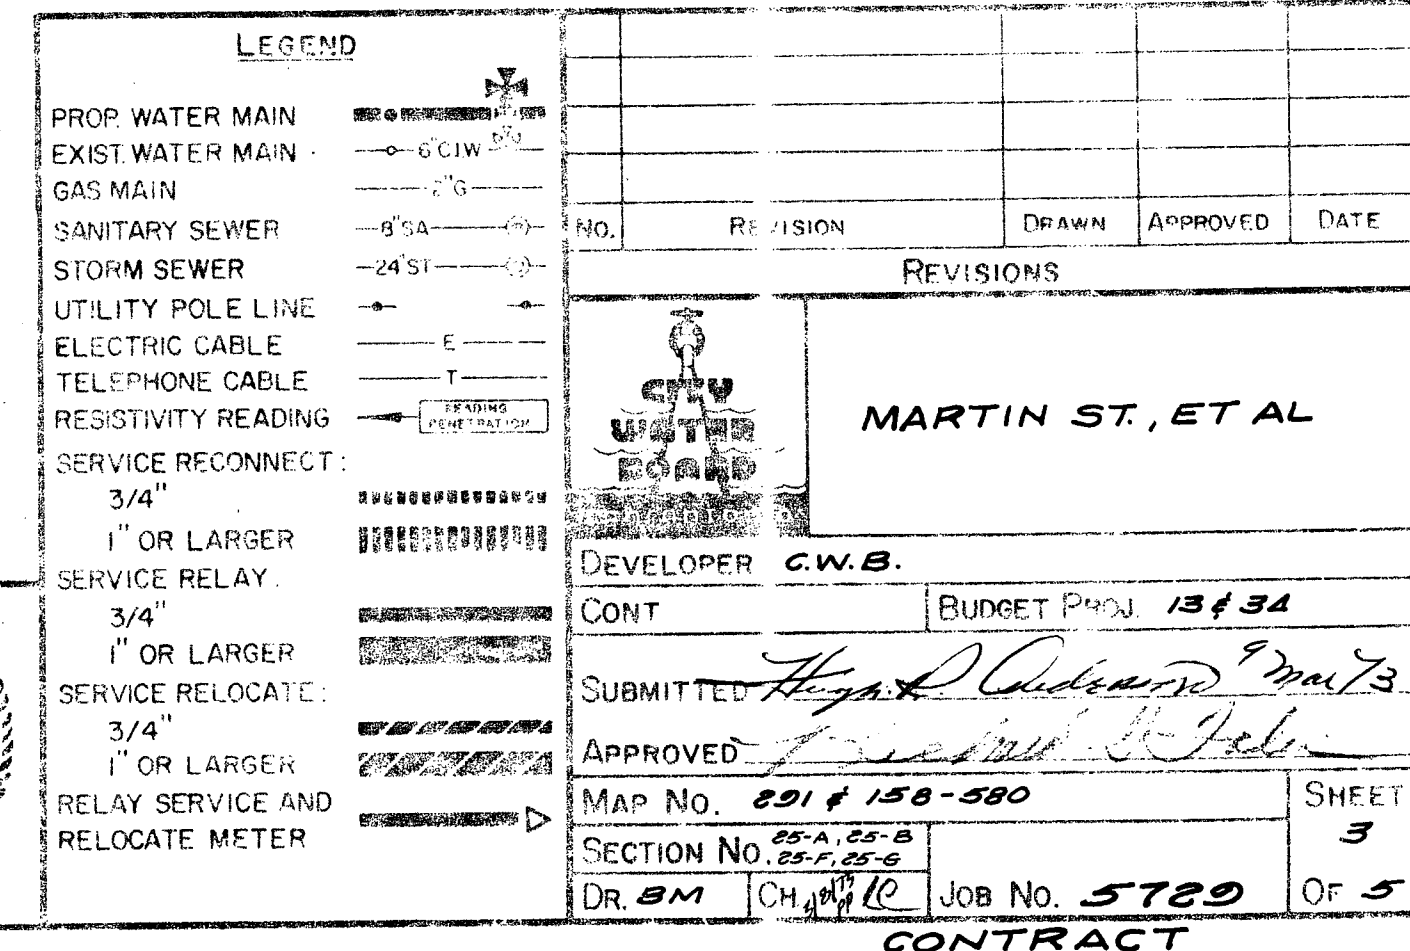 LEGEND
PROP. WATER MAIN
EXIST. WATER MAIN 6"C.I.W
GAS MAIN 2"G
SANITARY SEWER 8"SA
STORM SEWER 24"ST
UTILITY POLE LINE
ELECTRIC CABLE E
TELEPHONE CABLE T
RESISTIVITY READING READING
PENETRATION
SERVICE RECONNECT:
3/4"
1" OR LARGER
SERVICE RELAY:
3/4"
1" OR LARGER
SERVICE RELOCATE:
3/4"
1" OR LARGER
RELAY SERVICE AND
RELOCATE METER
NO. REVISION DRAWN APPROVED DATE
REVISIONS
CITY
WATER
BOARD
MARTIN ST., ET AL
DEVELOPER C.W.B.
CONT BUDGET PROJ. 13 & 34
SUBMITTED Hugh R. Anderson 9 Mar 73
APPROVED
MAP NO. 291 & 158-580
SHEET
3
OF 5
SECTION NO. 25-A, 25-B
25-F, 25-G
DR. BM CH. JOB NO. 5729
CONTRACT